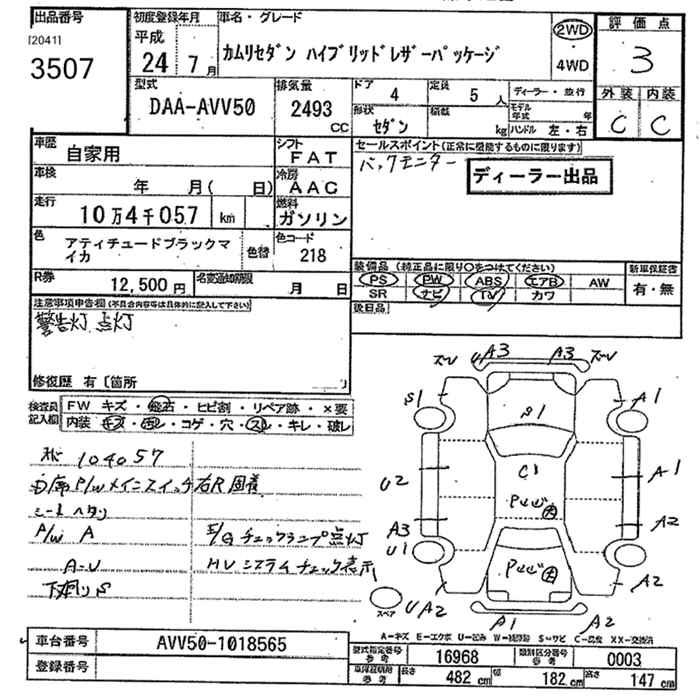 出品番号 初度登録年月 車名・グレード 評価点
[2041] 平成 2WD
3507 24年 7月 カムリセダン ハイブリッドレザーパッケージ 4WD 3
型式 排気量 ドア 4 定員 5人 ディーラー・並行 外装 内装
DAA-AVV50 2493CC 形状 セダン 積載 kg モデル年式 年 ハンドル 左・右 C C
車歴 自家用 シフト FAT セールスポイント(正常に機能するものに限ります)
車検 年 月( 日) 冷房 AAC バックモニター ディーラー出品
走行 10万4千057 km 燃料 ガソリン
色 アティチュードブラックマイカ 色替 色コード 218
装備品(純正品に限り○をつけてください) 新車保証書
R券 12,500円 名変通知期限 月 日 PS PW ABS エアB AW 有・無
SR ナビ TV カワ
注意事項申告欄(不具合内容等は具体的に記入して下さい) 後日品
警告灯 点灯
修復歴 有 〔箇所 〕
検査員記入欄 FW キズ・飛石・ヒビ割・リペア跡・×要
内装 キズ・汚レ・コゲ・穴・スレ・キレ・破レ
ズレ U A3 A3 ズレ
S1 A1
S1
104057
P/Wメインスイッチ右R固着
シートヘタリ
P/W A E/Gチェックランプ点灯
A-U HVシステムチェック表示
下廻りS
U2 C1 A1
A3 A2
U1
A2
スペア UA2 A1 A2
A=キズ E=エクボ U=凹み W=補修跡 S=サビ C=腐食 XX=交換済
車台番号 AVV50-1018565 型式指定番号 参考 16968 類別区分番号 参考 0003
登録番号 参考 長さ 482cm 幅 182cm 高さ 147cm